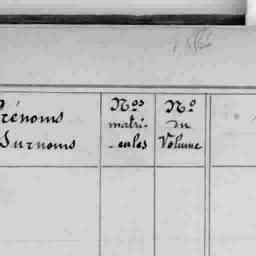 Prénoms
Surnoms
Nos
matri-
cules
No
du
Volume